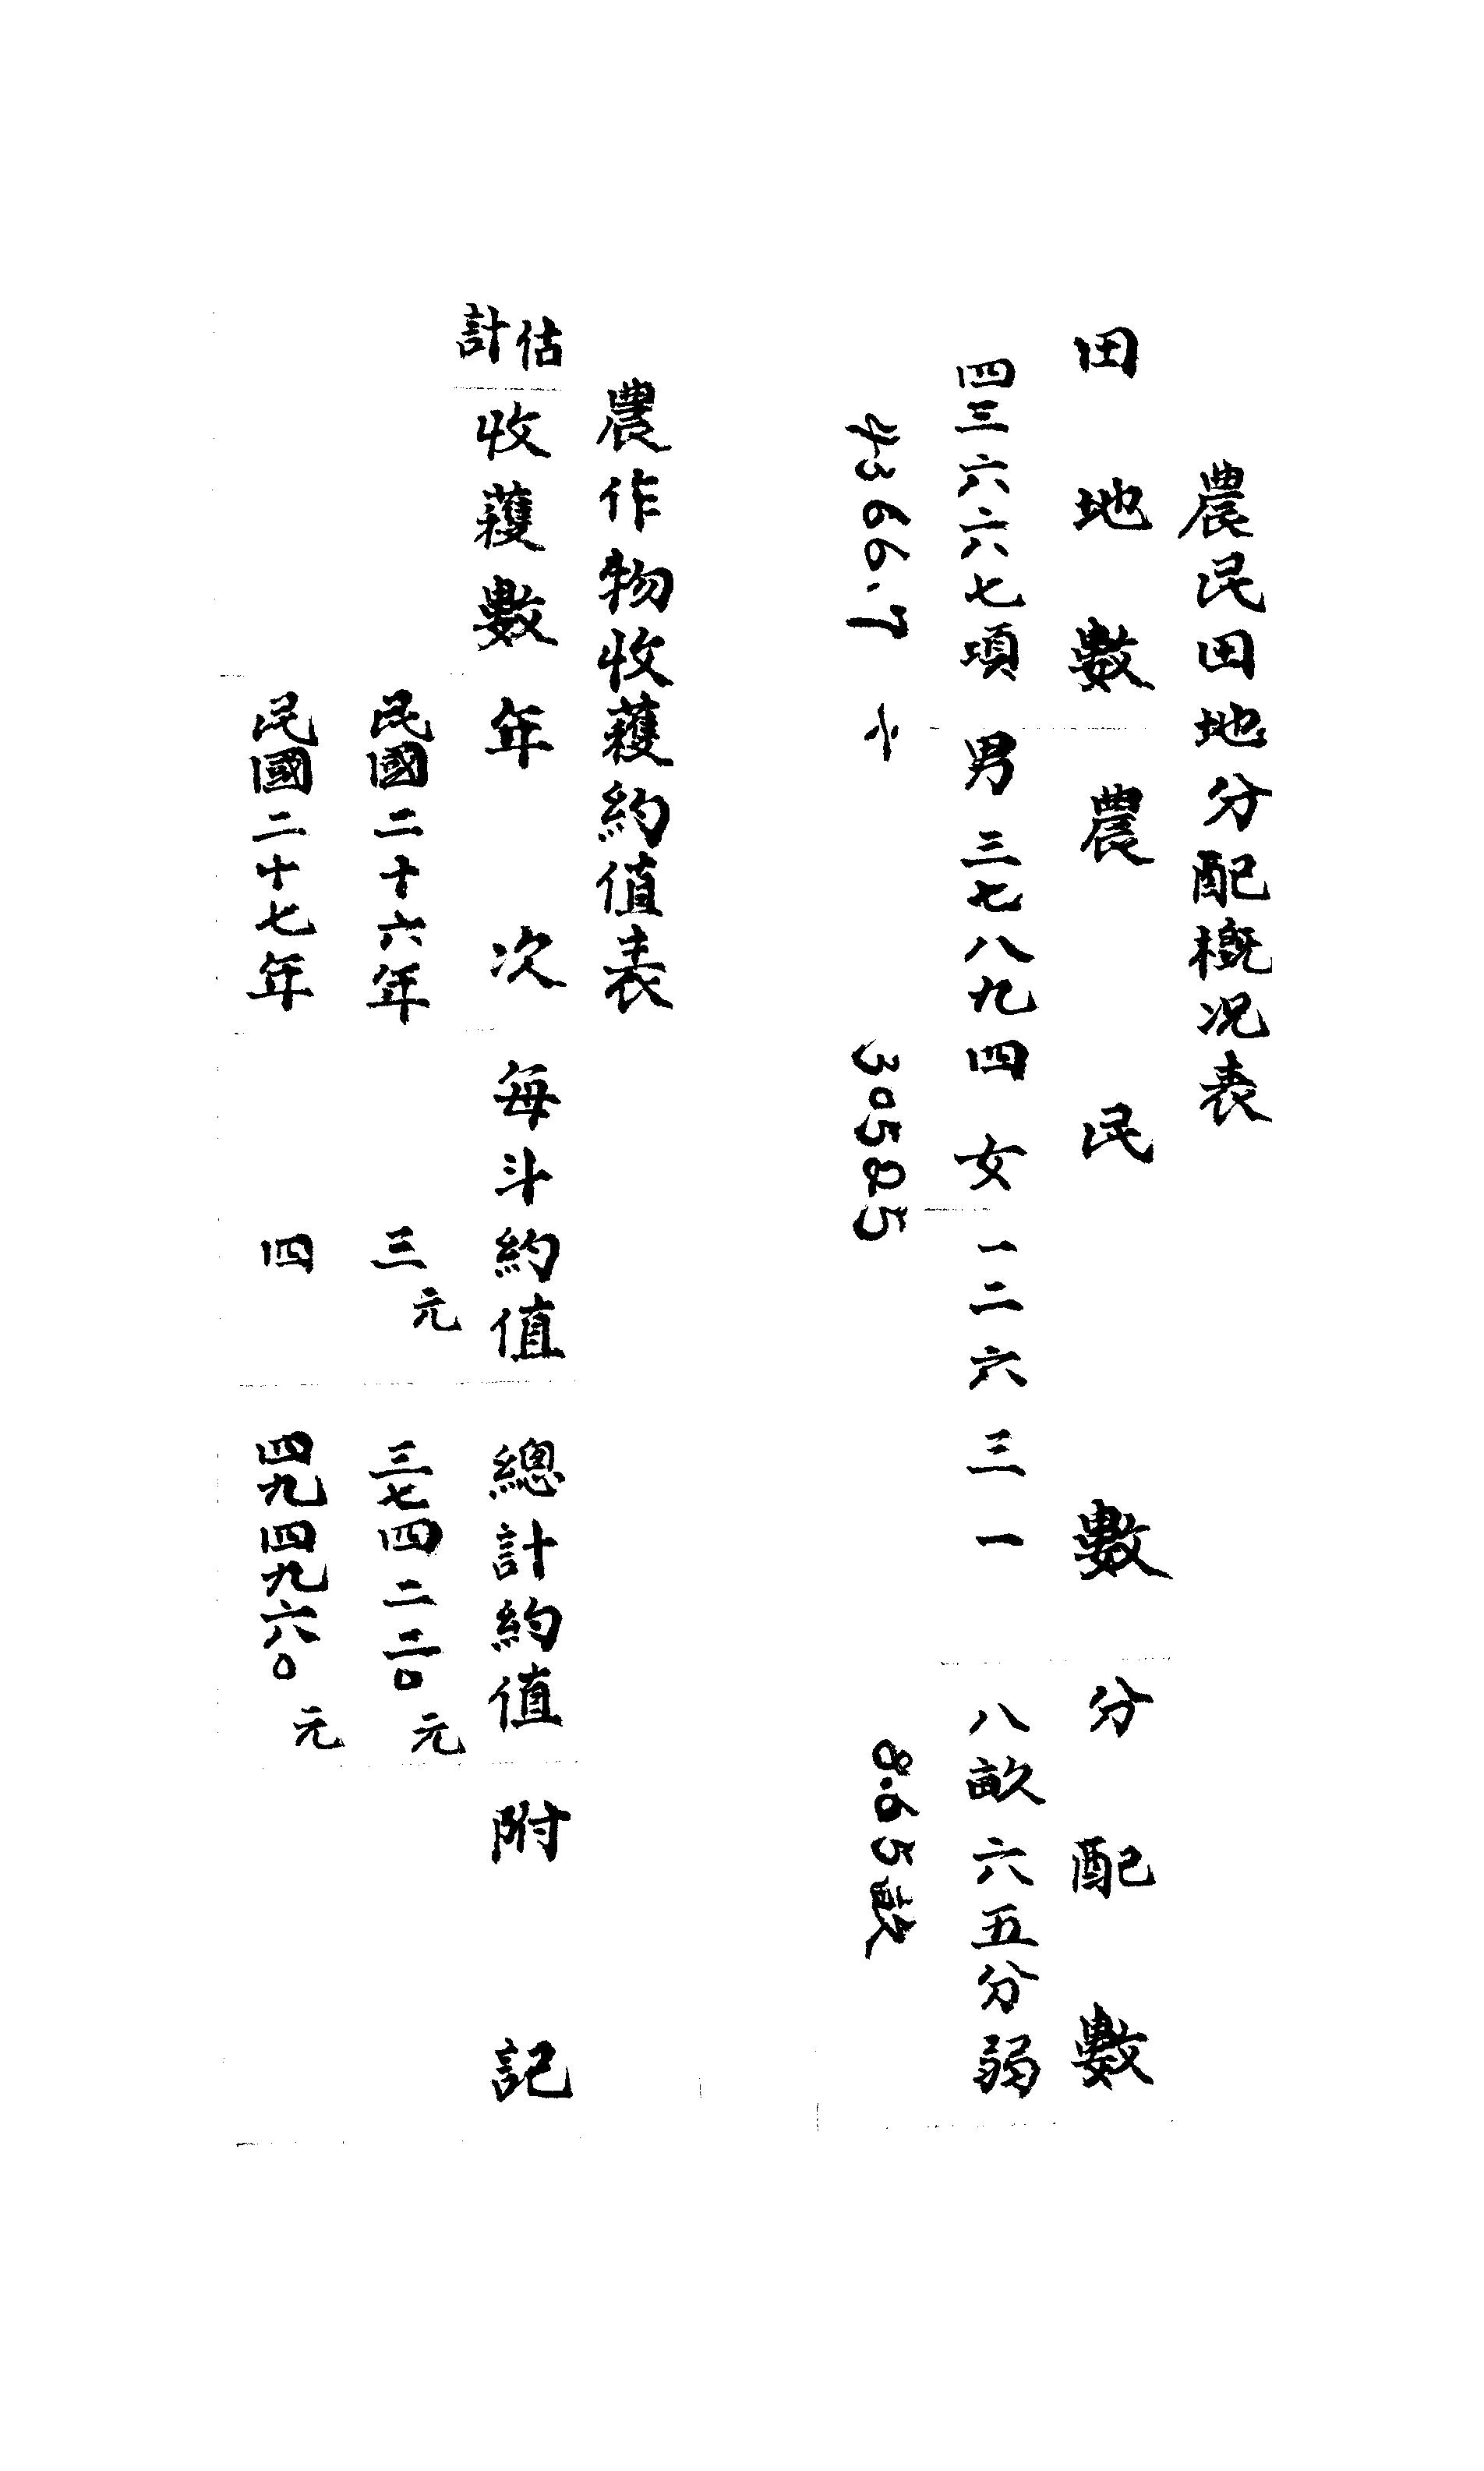 農民田地分配概況表
田地數 農民數 分配數
四三六六七項 男三七八九四 女一二六三一 八畝六五分弱
4366.7 50525 8.65畝
農作物收穫約值表
估計收穫數 年次 每斗約值 總計約值 附記
民國二十六年 三元 三七四二二〇元
民國二十七年 四 四九四九六〇元